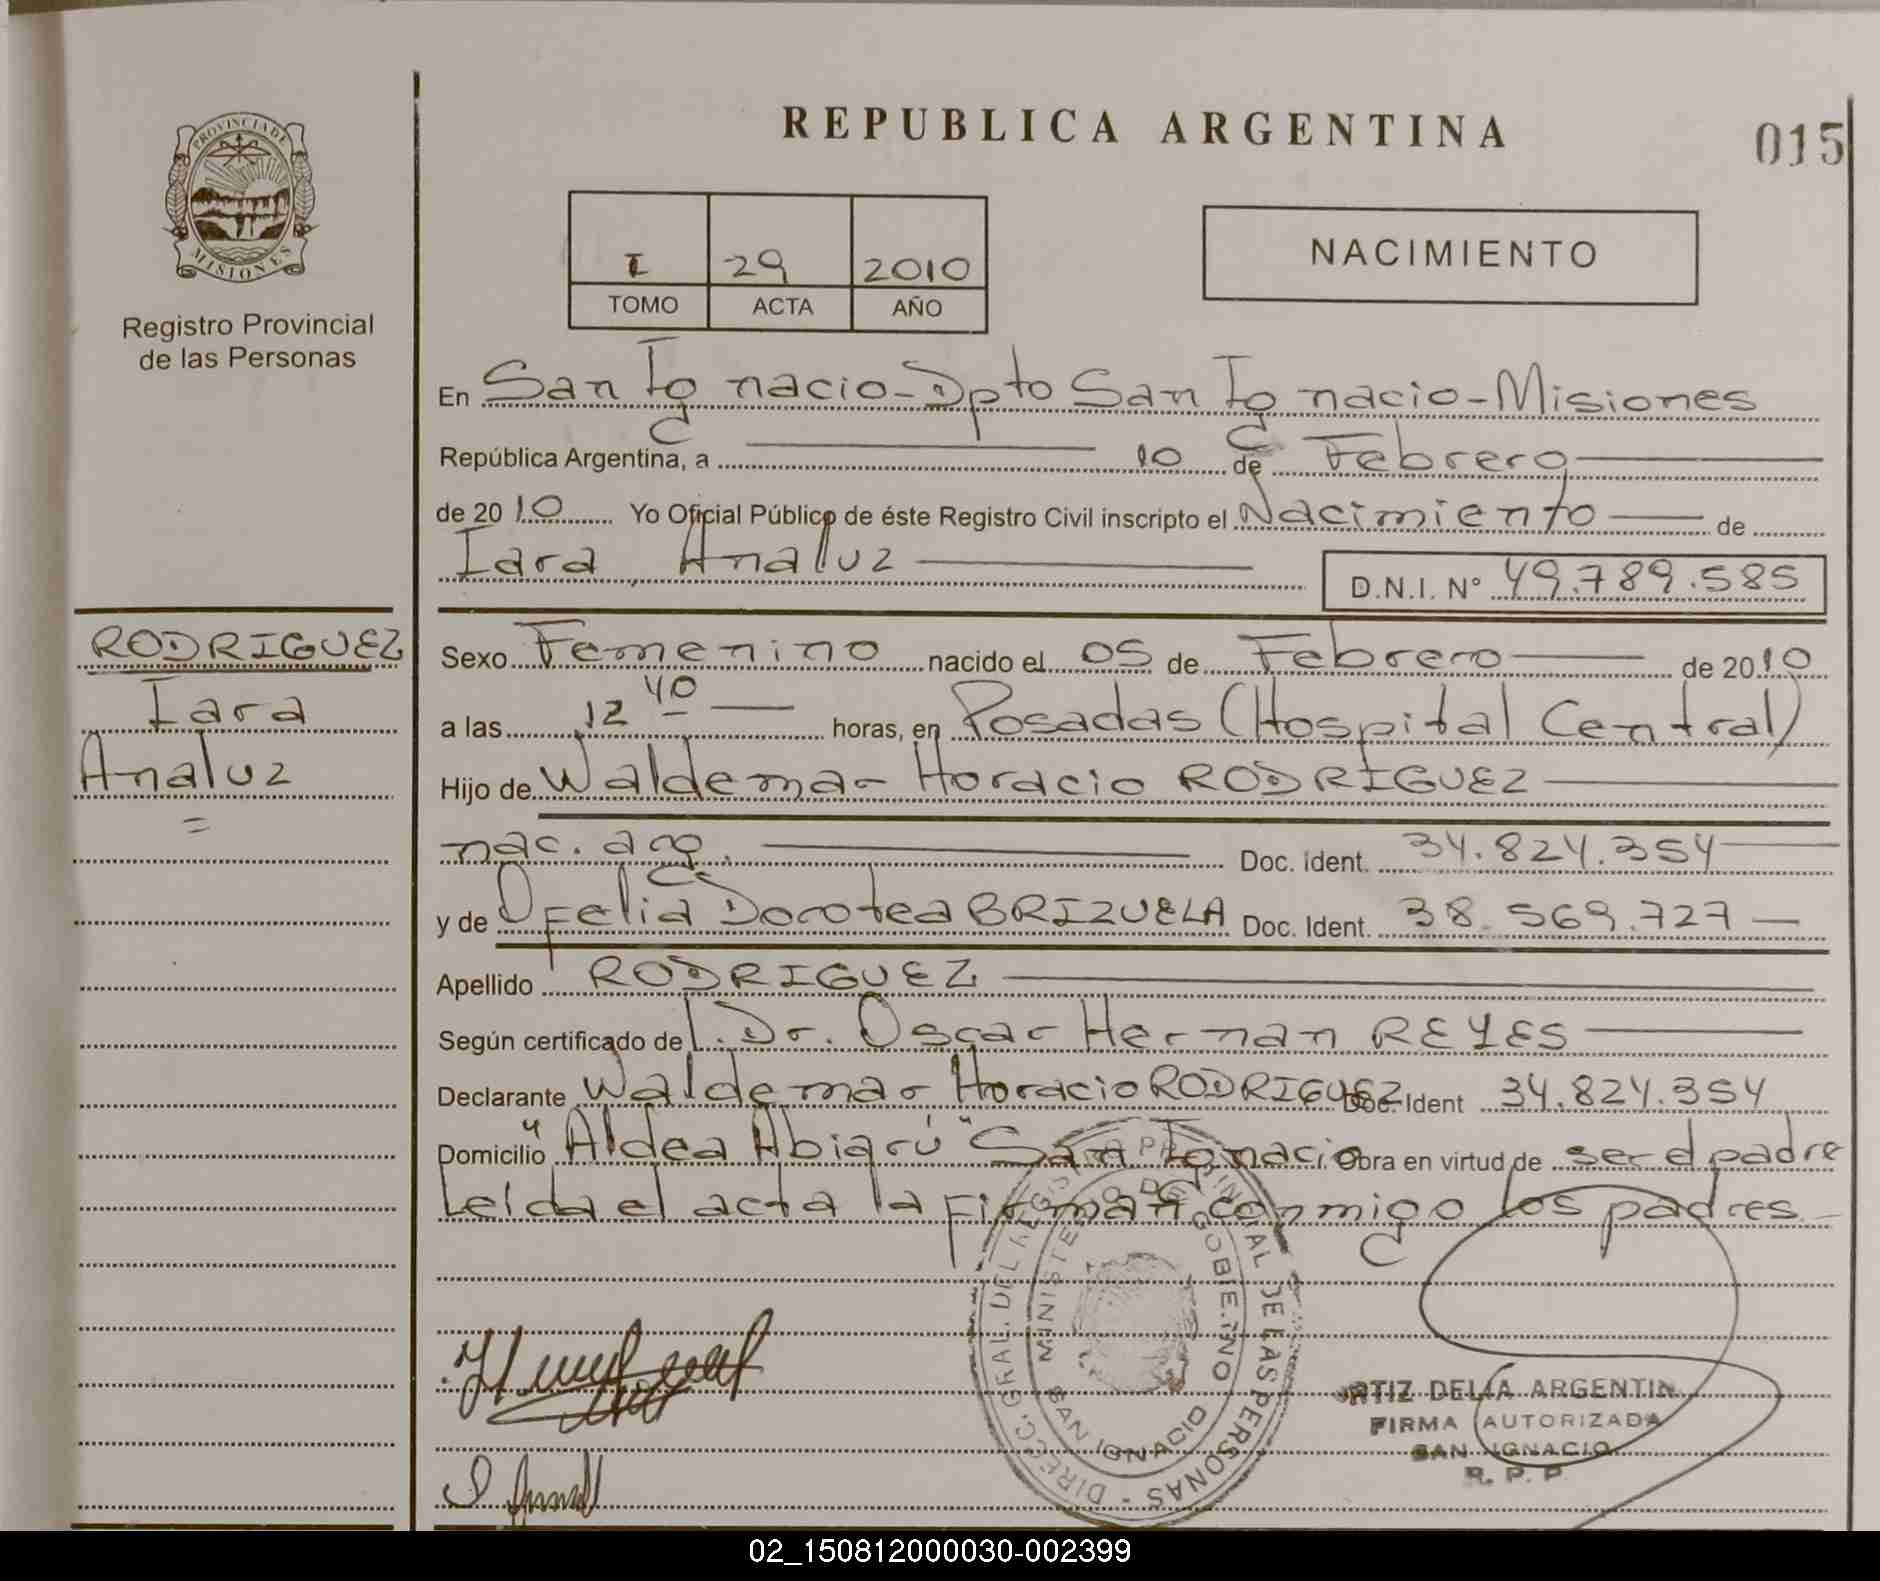 REPUBLICA ARGENTINA
015
PROVINCIA DE MISIONES
Registro Provincial
de las Personas
I 29 2010
TOMO ACTA AÑO
NACIMIENTO
En San Ignacio - Dpto San Ignacio - Misiones
República Argentina, a 10 de Febrero
de 2010 Yo Oficial Público de éste Registro Civil inscripto el Nacimiento de
Iara Analuz
D.N.I. N° 49.789.585
RODRIGUEZ
Iara
Analuz
Sexo Femenino nacido el 05 de Febrero de 2010
a las 12 40 horas, en Posadas (Hospital Central)
Hijo de Waldemar Horacio RODRIGUEZ
nac. arg. Doc. ident. 34.824.354
y de Ofelia Dorotea BRIZUELA Doc. Ident. 38.569.727
Apellido RODRIGUEZ
Según certificado de l. Dr. Oscar Hernan REYES
Declarante Waldemar Horacio RODRIGUEZ Doc. Ident 34.824.354
Domicilio "Aldea Abiarú" San Ignacio Obra en virtud de ser el padre
Leída el acta la firman conmigo los padres
DIRECC. GRAL. DEL REGISTRO PROVINCIAL DE LAS PERSONAS
MINISTERIO DE GOBIERNO
SAN IGNACIO
RTIZ DELIA ARGENTIN
FIRMA AUTORIZADA
SAN IGNACIO
R. P. P.
02_150812000030-002399